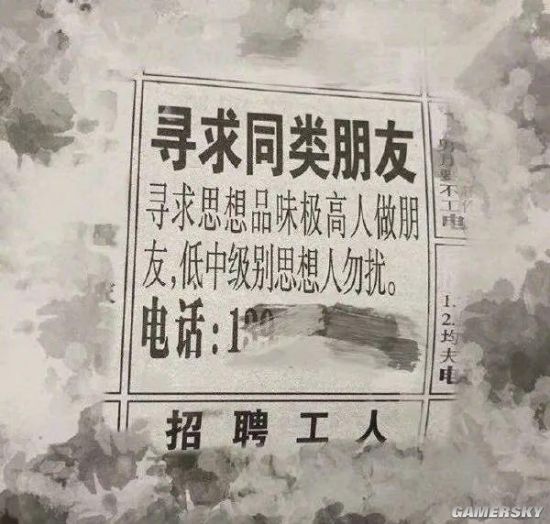 寻求同类朋友
寻求思想品味极高人做朋
友,低中级别思想人勿扰。
电话:1
招聘工人
1.
2.均
夫
电
GAMERSKY